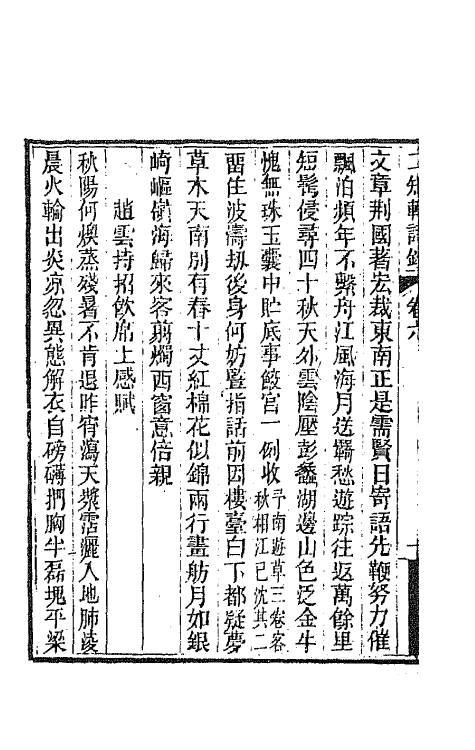 文章荆國著宏裁東南正是需賢日寄語先鞭努力催
飄泊頻年不繫舟江風海月送羈愁遊踪往返萬餘里
短髩侵尋四十秋天外雲陰壓彭蠡湖邊山色泛金牛
愧無珠玉囊中貯底事鮫宮一例收予南遊草三卷客秋湘江已沈其二
留住波濤刼後身何妨豎指話前因樓臺白下都疑夢
草木天南別有春十丈紅棉花似錦兩行畫舫月如銀
崎嶇嶺海歸來客剪燭西窗意倍親
趙雲持招飲席上感賦
秋陽何燠蒸殘暑不肯退昨宵瀉天漿霑灑入地肺淩
晨火輪出炎凉忽異態解衣自磅礴捫胸半磊塊平梁